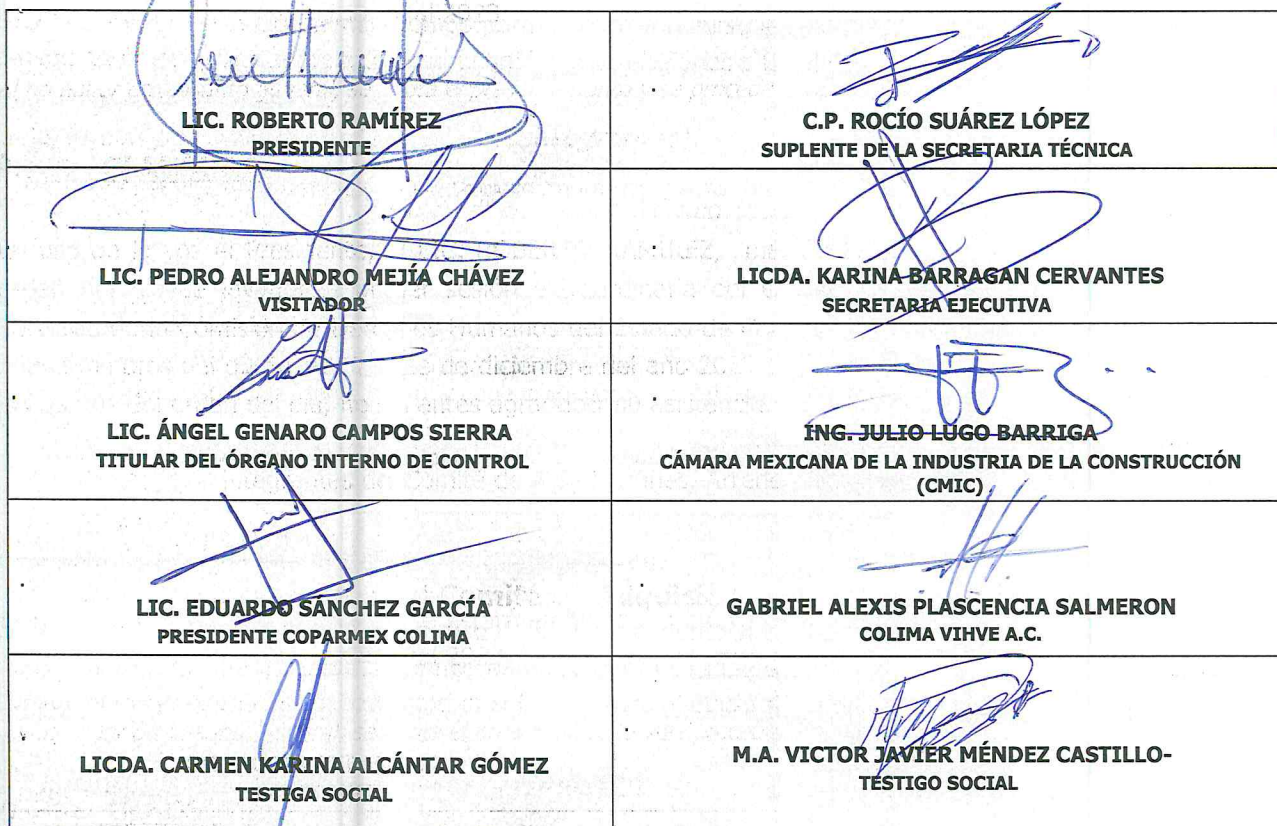 LIC. ROBERTO RAMÍREZ
PRESIDENTE
C.P. ROCÍO SUÁREZ LÓPEZ
SUPLENTE DE LA SECRETARIA TÉCNICA
LIC. PEDRO ALEJANDRO MEJÍA CHÁVEZ
VISITADOR
LICDA. KARINA BARRAGAN CERVANTES
SECRETARIA EJECUTIVA
LIC. ÁNGEL GENARO CAMPOS SIERRA
TITULAR DEL ÓRGANO INTERNO DE CONTROL
ING. JULIO LUGO BARRIGA
CÁMARA MEXICANA DE LA INDUSTRIA DE LA CONSTRUCCIÓN
(CMIC)
LIC. EDUARDO SÁNCHEZ GARCÍA
PRESIDENTE COPARMEX COLIMA
GABRIEL ALEXIS PLASCENCIA SALMERON
COLIMA VIHVE A.C.
LICDA. CARMEN KARINA ALCÁNTAR GÓMEZ
TESTIGA SOCIAL
M.A. VICTOR JAVIER MÉNDEZ CASTILLO-
TESTIGO SOCIAL